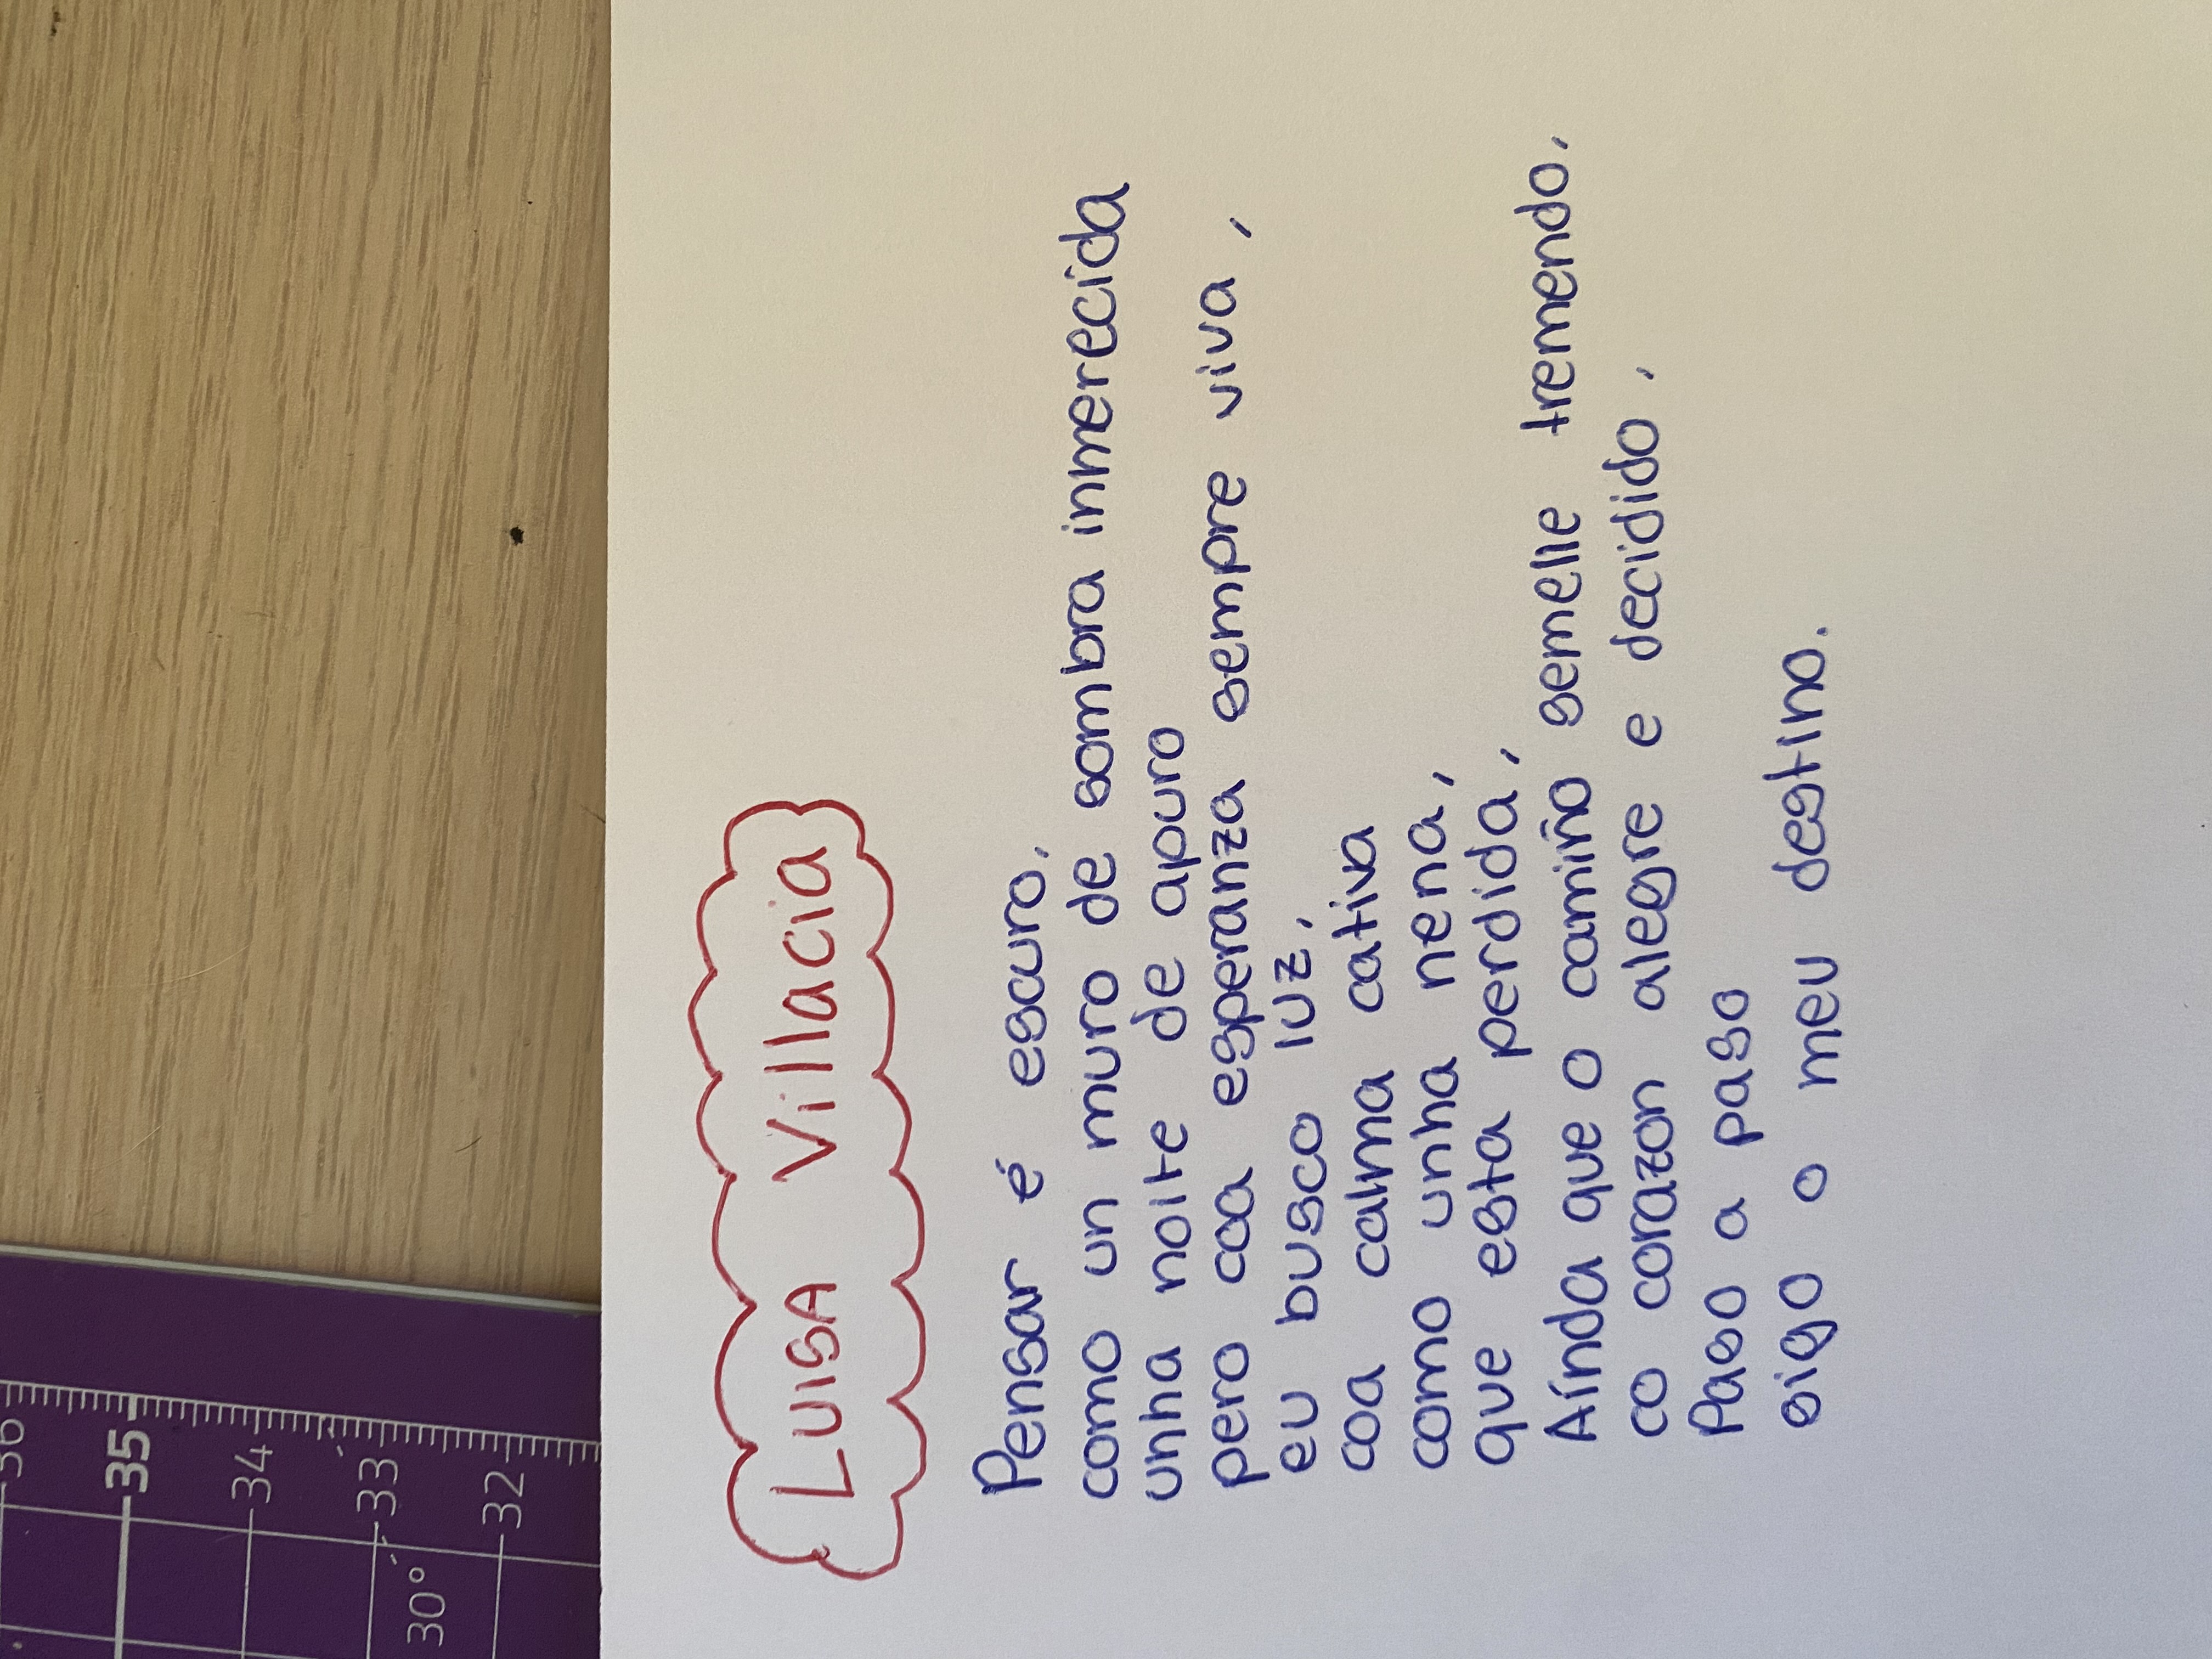 Luisa Villacia
Pensar é escuro,
como un muro de sombra inmerecida
unha noite de apuro
pero coa esperanza sempre viva,
eu busco luz,
coa calma cativa
como unha nena,
que esta perdida,
Aínda que o camiño semelle tremendo,
co corazon alegre e decidido,
Paso a paso
sigo o meu destino.
36
35
34
33
32
30°